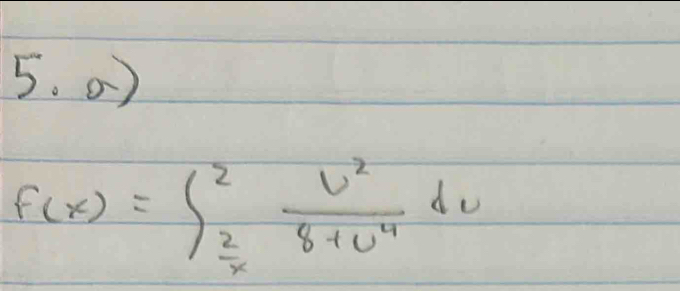 5. a)
f(x) = ∫_{2/x}^{2} u²/(8+u⁴) du